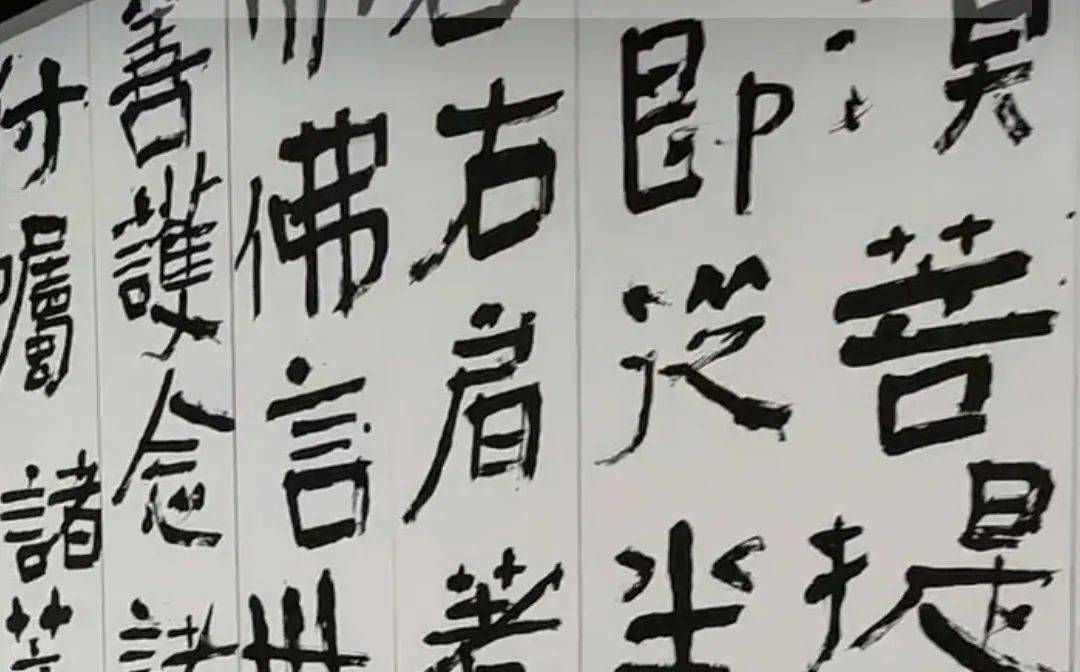 須菩提
即從坐
右肩著
佛言世
善護念諸
付囑諸菩